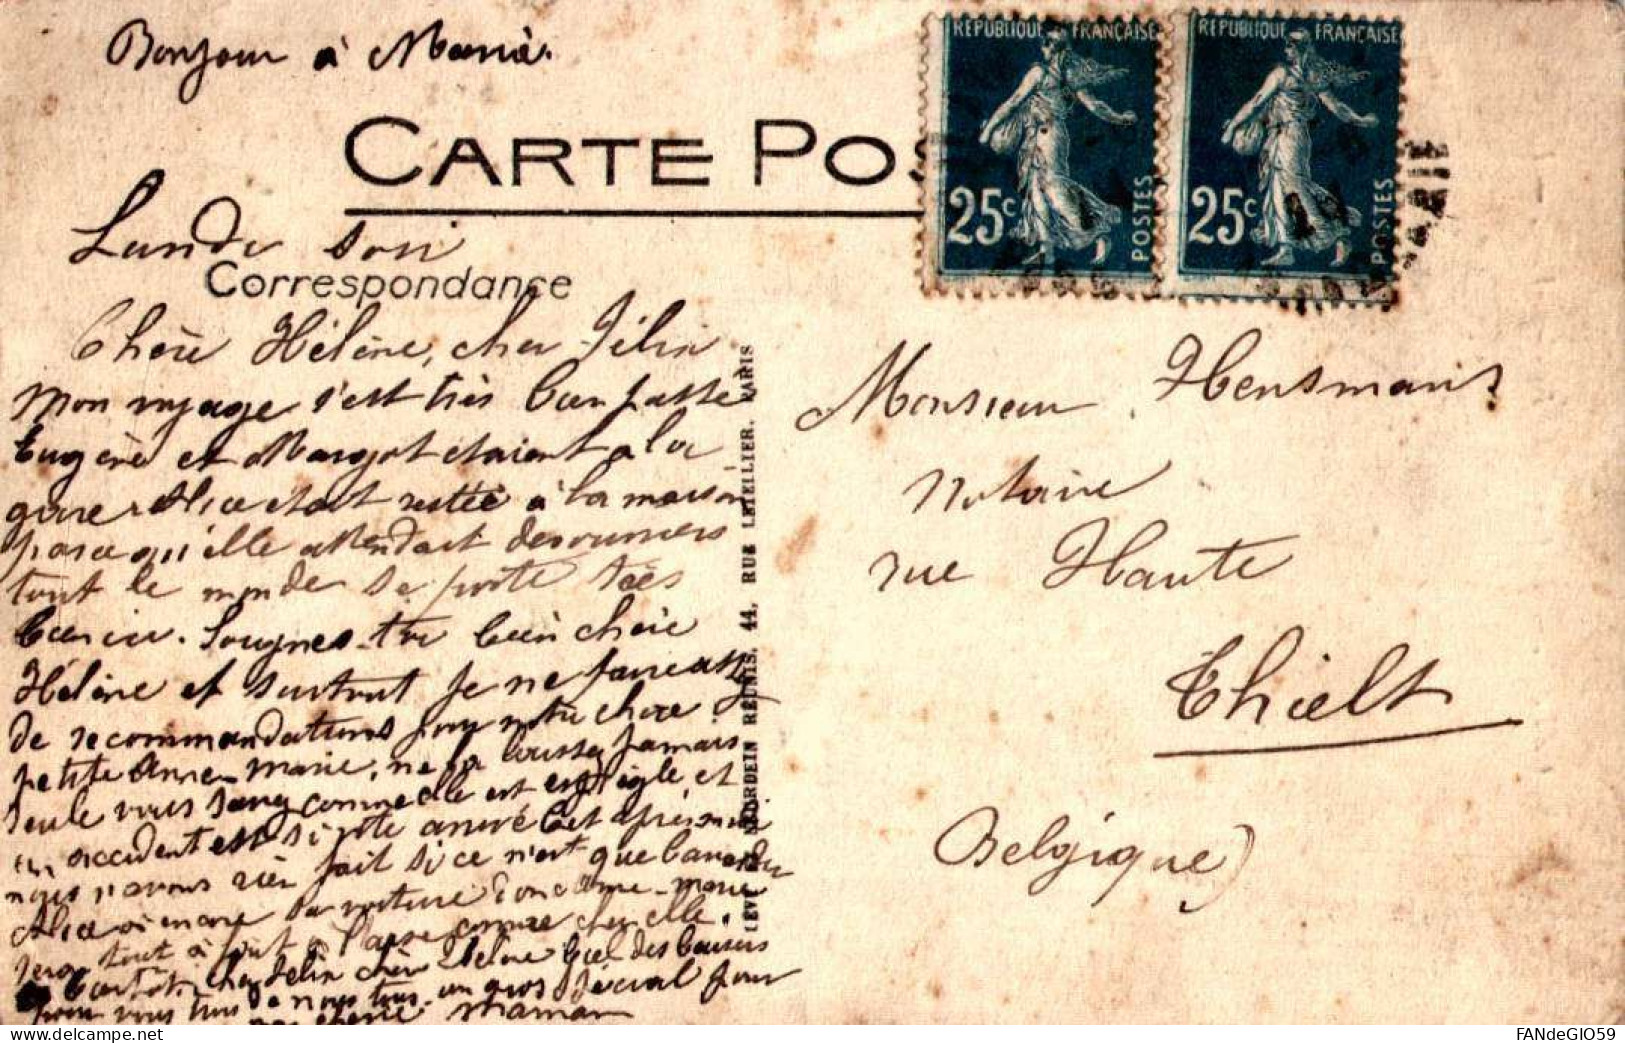 Bonjour à Maria.
REPUBLIQUE FRANÇAISE
25c POSTES
REPUBLIQUE FRANÇAISE
25c POSTES
CARTE POS
Lundi soir
Correspondance
Chère Hélène, cher Félix
Mon voyage s'est très bien passé
Eugène et Margot étaient à la
gare Alice était restée à la maison
parce qu'elle attendait des ouvriers
tout le monde se porte très
bien ici. Soignes-toi bien chère
Hélène et surtout je ne fais assez
de recommandations pour notre chère
petite Anne-Marie, ne la laissez jamais
seule vous savez comme elle est espiègle et
un accident est si vite arrivé Cet après-midi
nous n'avons rien fait si ce n'est que
Alice a encore sa voiture donc Anne-Marie
sera tout à fait à l'aise comme chez elle.
cher Félix chère Hélène des baisers
pour vous trois de nous tous un gros spécial pour
chérie Maman
LEVY NEURDEIN RÉUNIS, 44, RUE LETELLIER, PARIS
Monsieur Hensmans
Notaire
rue Haute
Thielt
Belgique)
FANdeGIO59